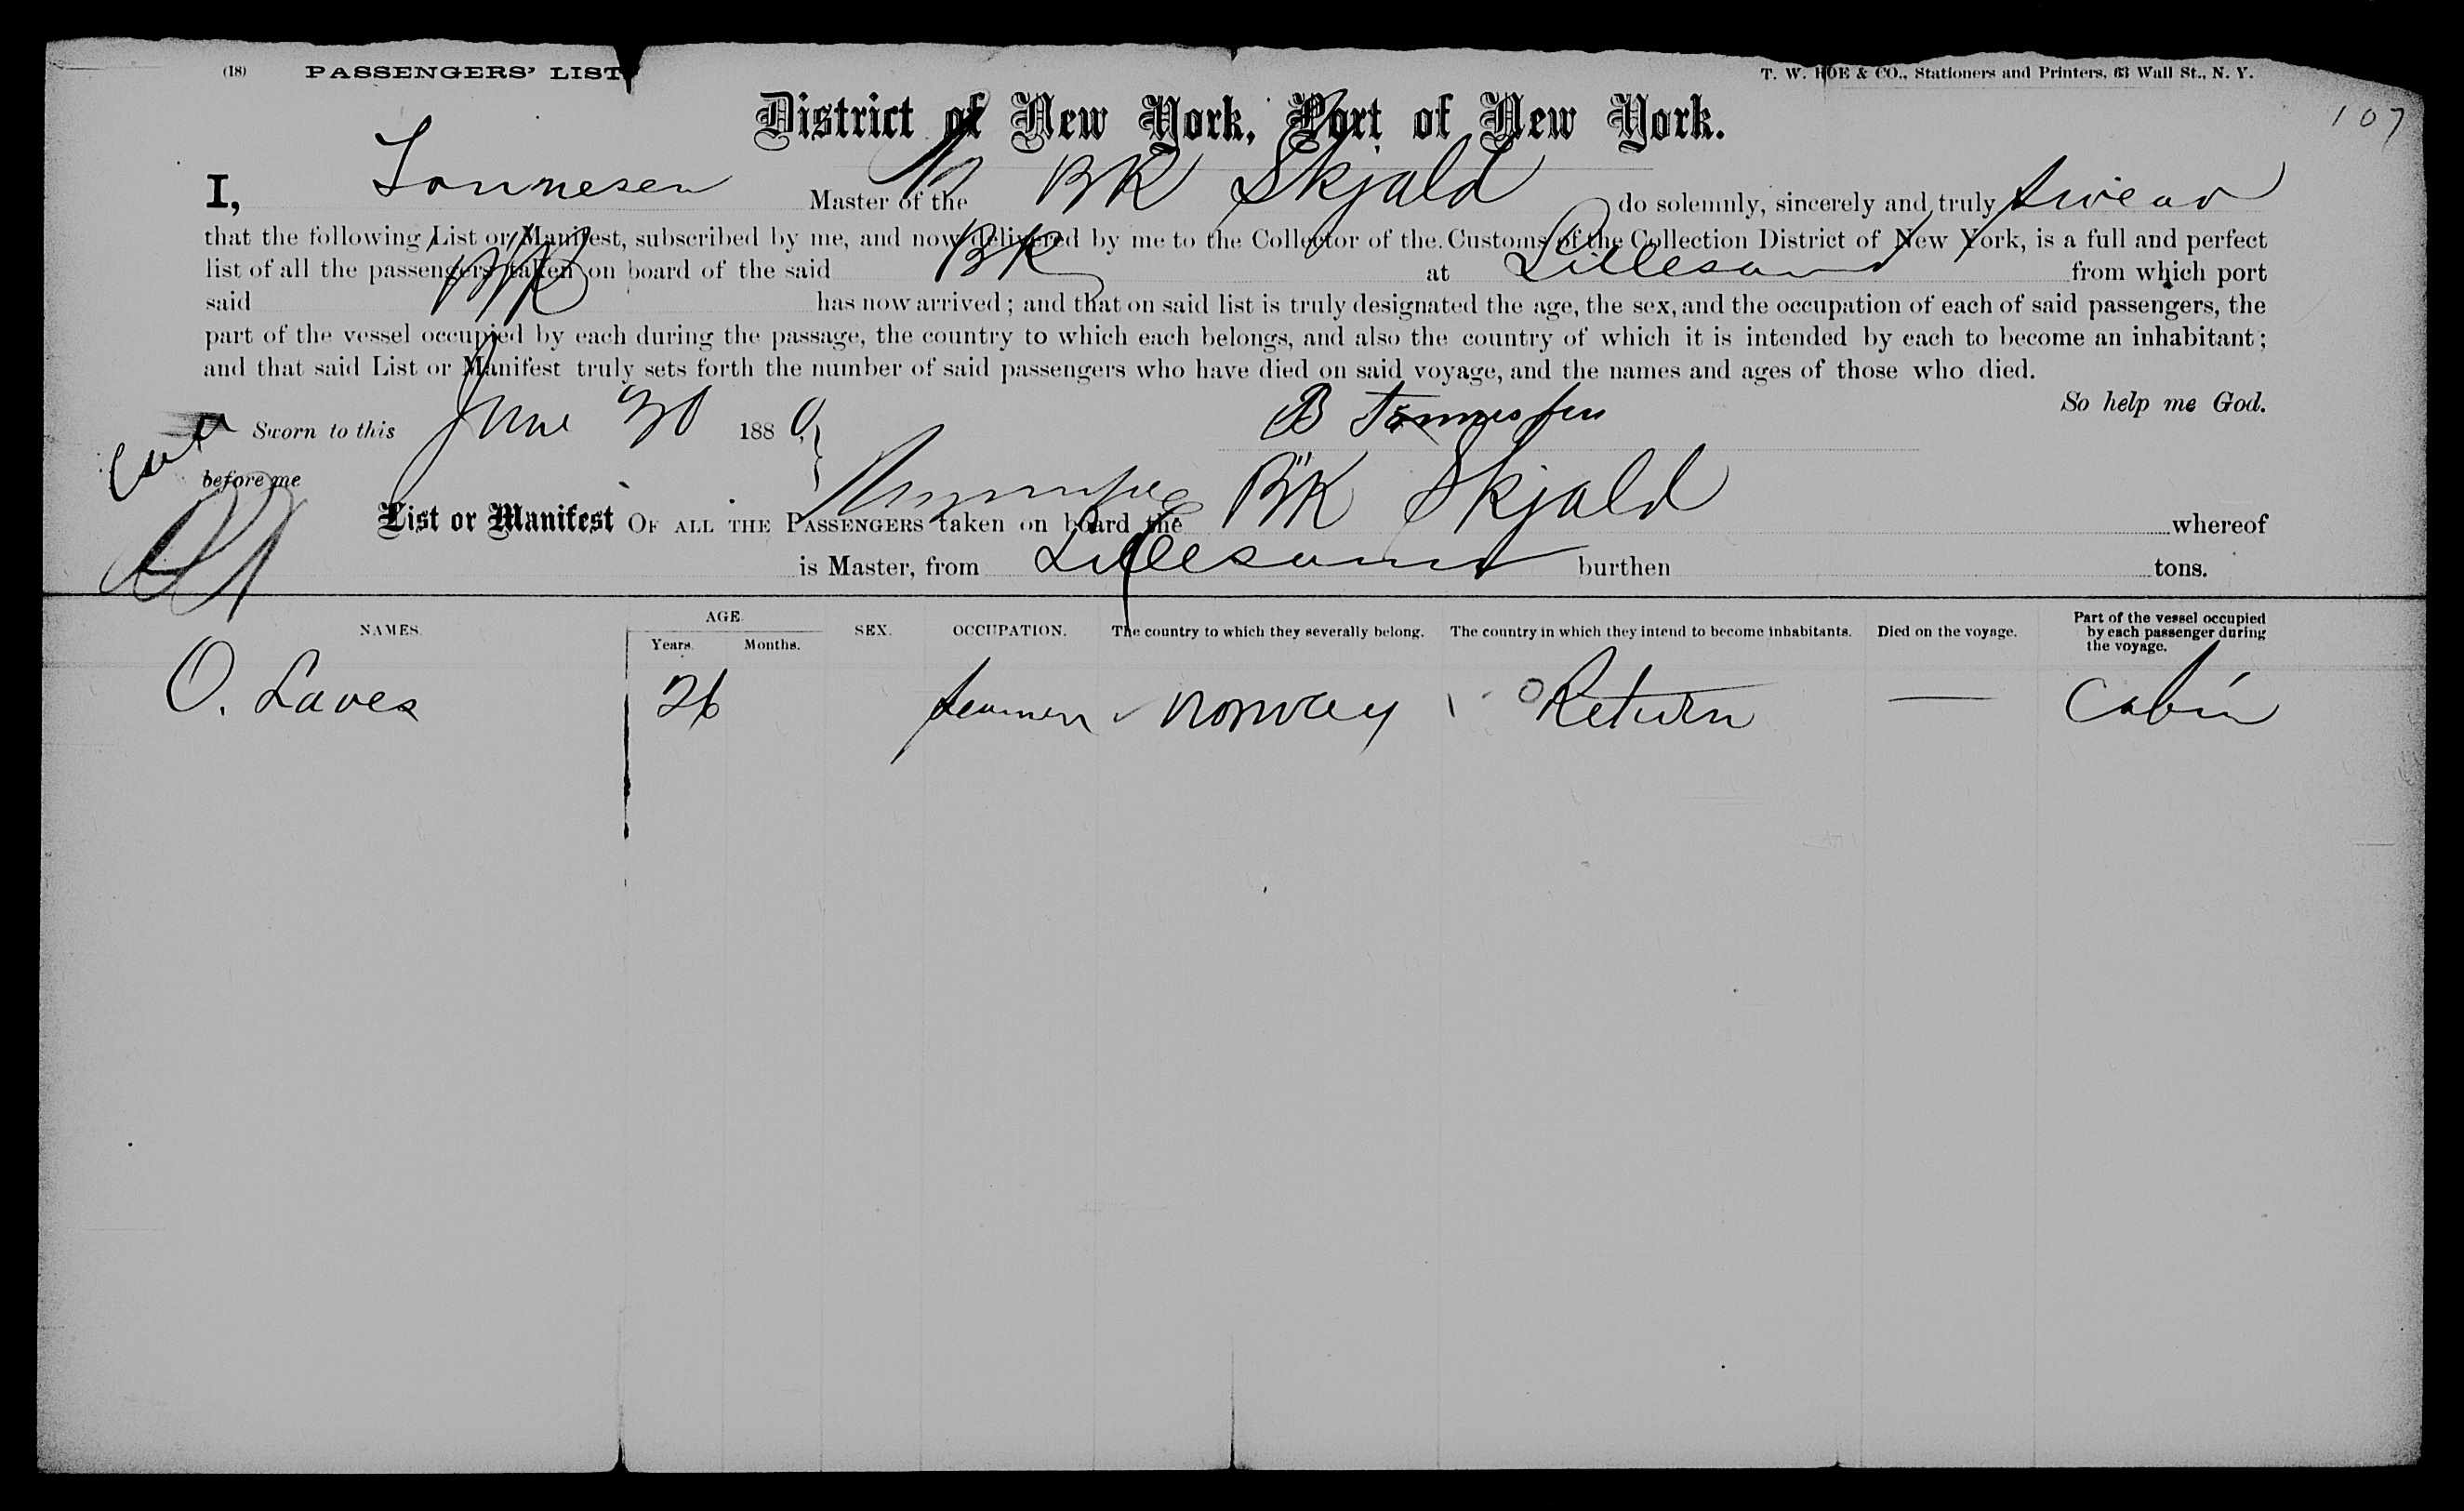 (18) PASSENGERS' LIST T. W. HOE & CO., Stationers and Printers, 63 Wall St., N. Y.
107
District of New York, Port of New York.
I, Tonnesen Master of the BK Skjald do solemnly, sincerely and truly swear
that the following List or Manifest, subscribed by me, and now delivered by me to the Collector of the Customs of the Collection District of New York, is a full and perfect
list of all the passengers taken on board of the said BK at Lillesand from which port
said BK has now arrived; and that on said list is truly designated the age, the sex, and the occupation of each of said passengers, the
part of the vessel occupied by each during the passage, the country to which each belongs, and also the country of which it is intended by each to become an inhabitant;
and that said List or Manifest truly sets forth the number of said passengers who have died on said voyage, and the names and ages of those who died.
So help me God.
Sworn to this June 30 1880, B Tönnessen
before me
List or Manifest OF ALL THE PASSENGERS taken on board the BK Skjald whereof
is Master, from Lillesand burthen tons.
NAMES. AGE. Years. Months. SEX. OCCUPATION. The country to which they severally belong. The country in which they intend to become inhabitants. Died on the voyage. Part of the vessel occupied by each passenger during the voyage.
O. Laves 26 Seamen Norway Return — Cabin